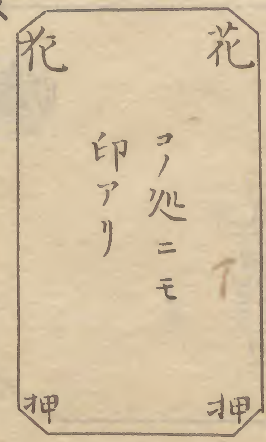 花
押
コノ処ニモ
印アリ
花
押